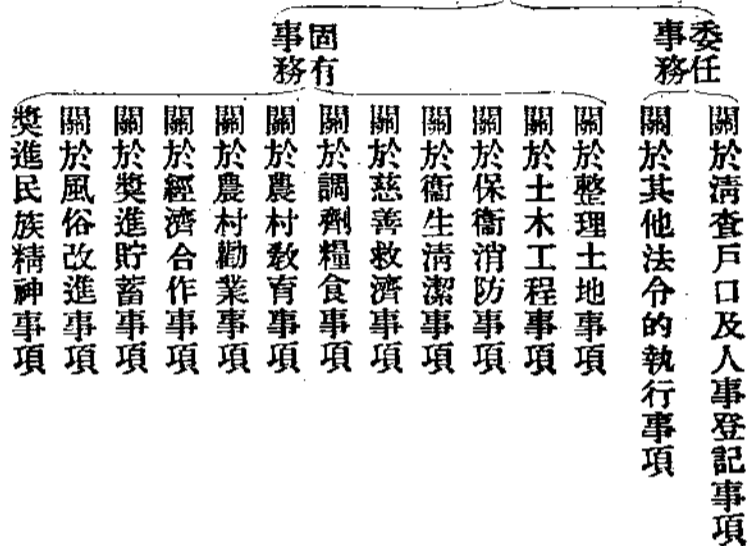 委任
事務
關於淸查戶口及人事登記事項
關於其他法令的執行事項
固有
事務
關於整理土地事項
關於土木工程事項
關於保衞消防事項
關於衞生淸潔事項
關於慈善救濟事項
關於調劑糧食事項
關於農村敎育事項
關於農村勸業事項
關於經濟合作事項
關於獎進貯蓄事項
關於風俗改進事項
獎進民族精神事項